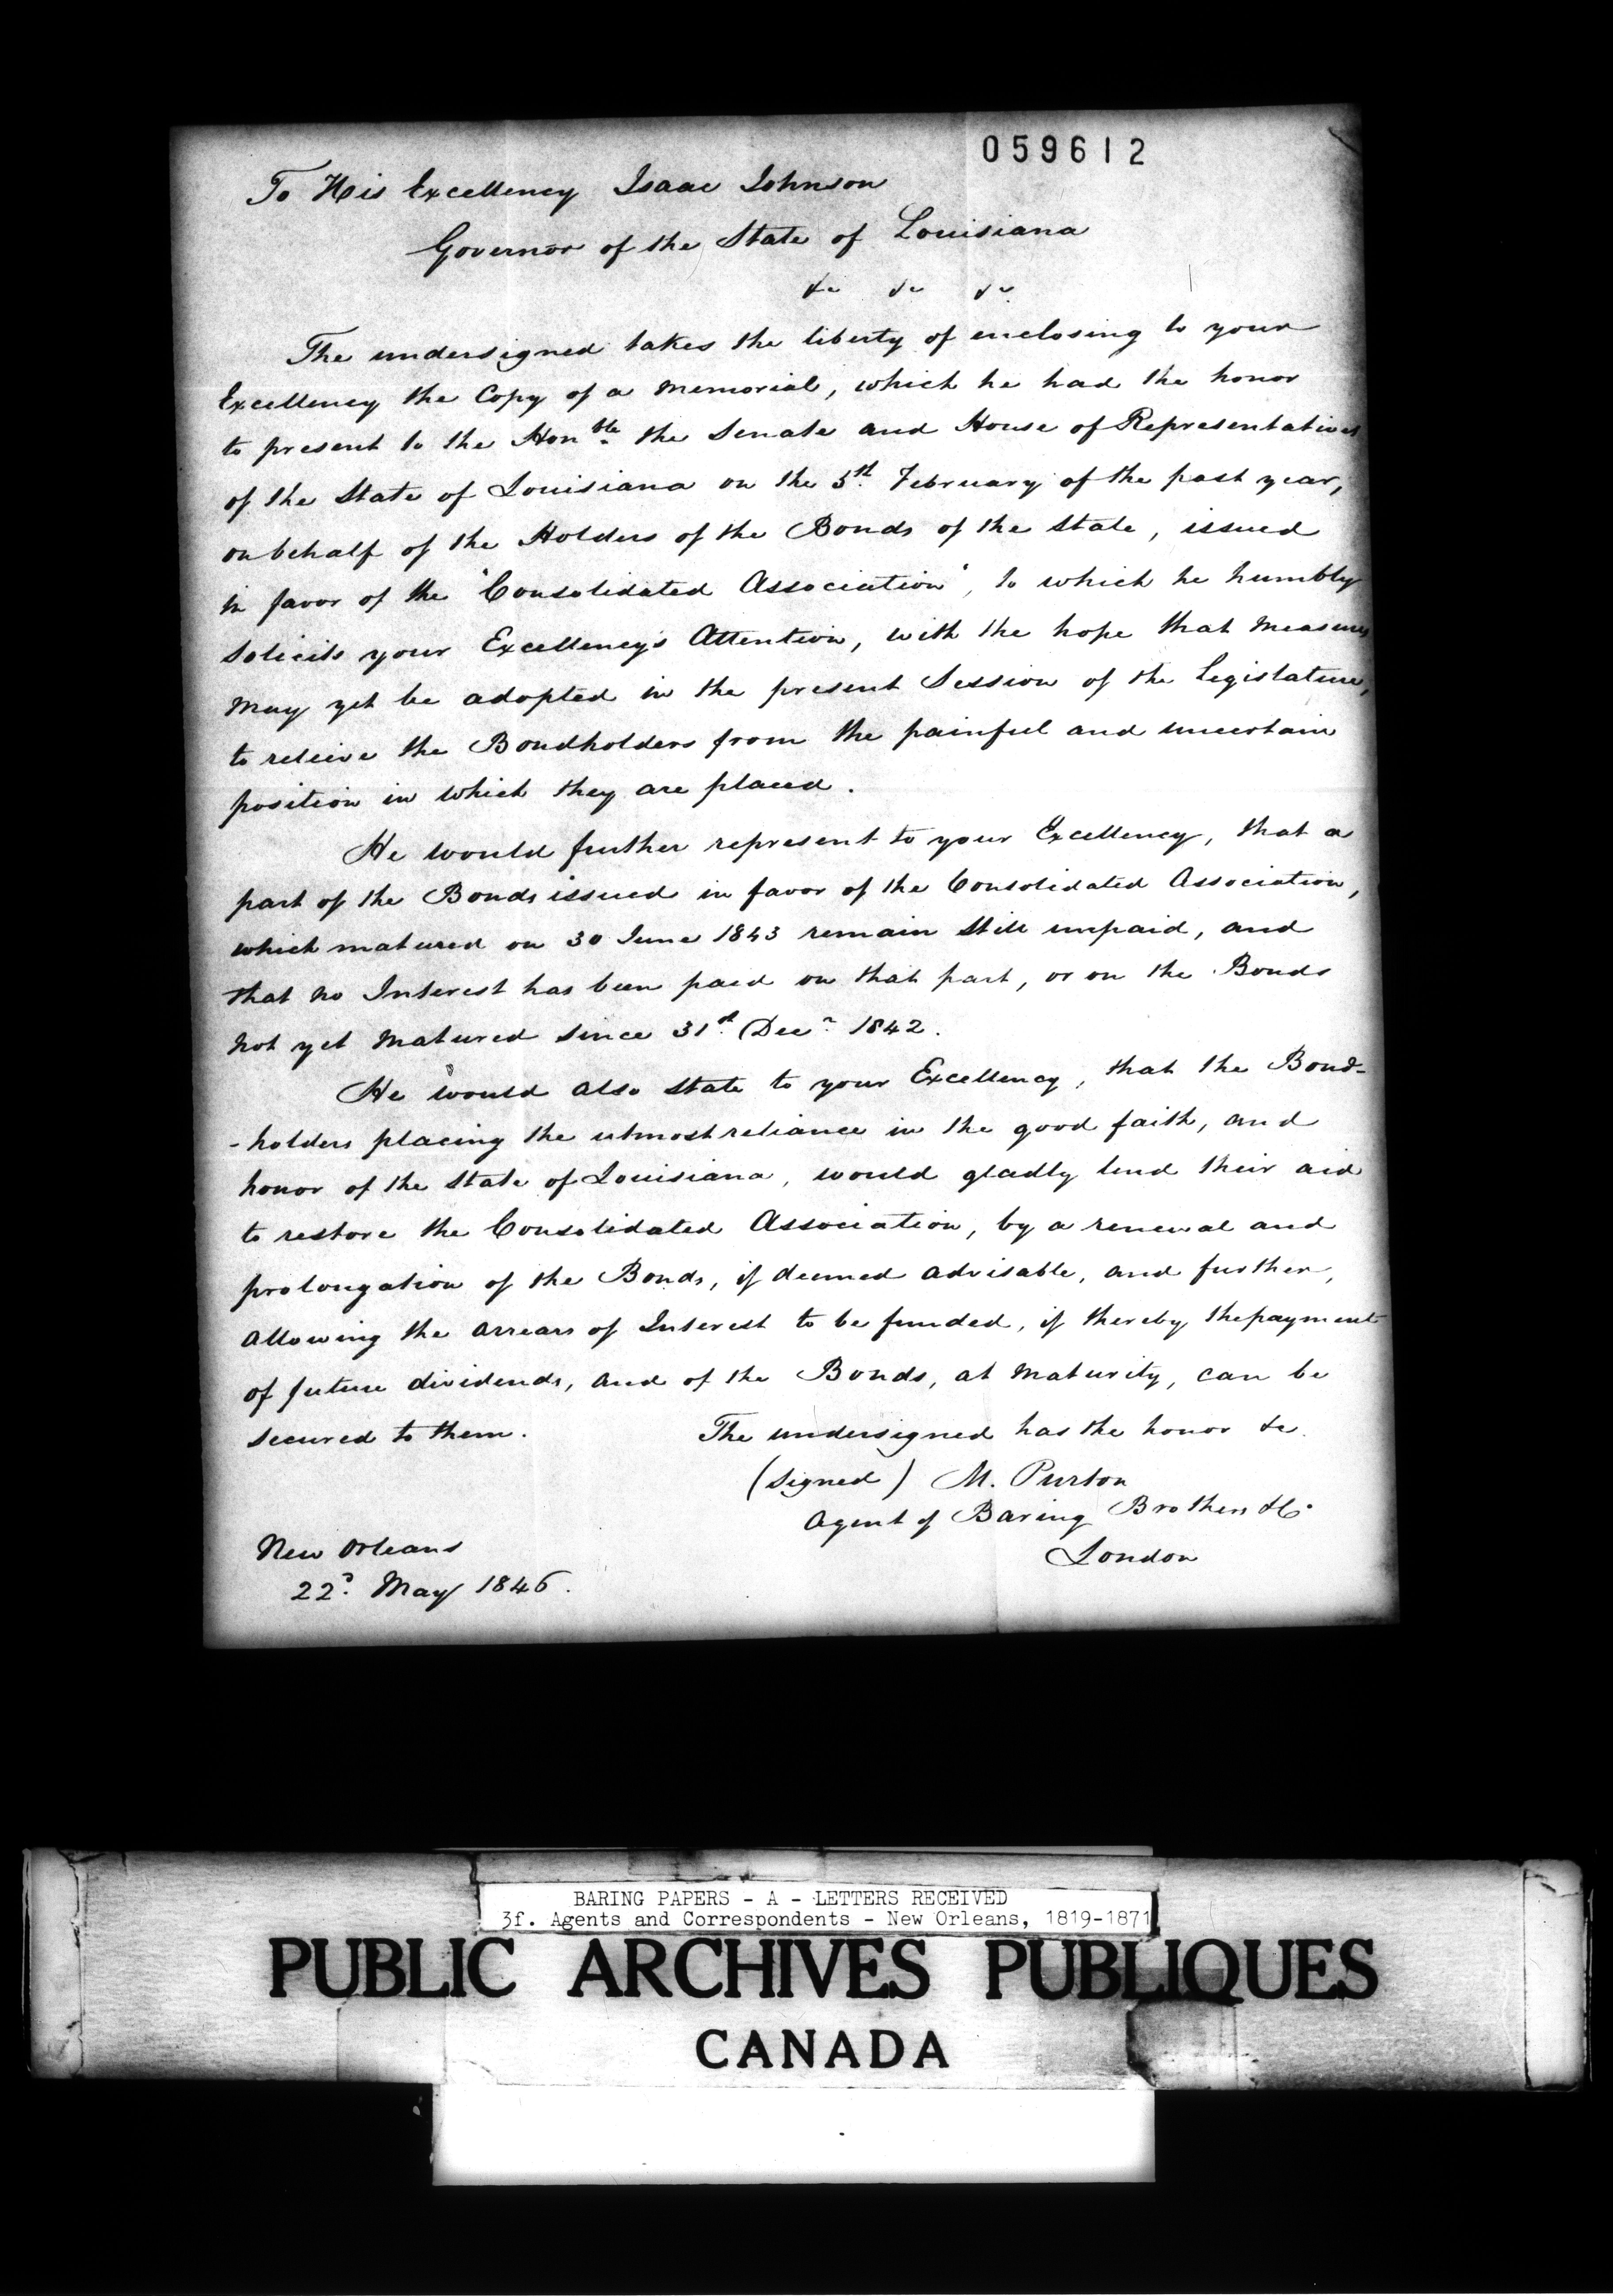 059612
To His Excellency Isaac Johnson
Governor of the State of Louisiana
&c &c &c
The undersigned takes the liberty of enclosing to your
Excellency the Copy of a Memorial, which he had the honor
to present to the Honble. the Senate and House of Representatives
of the State of Louisiana on the 5th. February of the past year,
on behalf of the Holders of the Bonds of the State, issued
in favor of the "Consolidated Association", to which he humbly
solicits your Excellency's Attention, with the hope that Measures
May yet be adopted in the present Session of the Legislature,
to relieve the Bondholders from the painful and uncertain
position in which they are placed.
He would further represent to your Excellency, that a
part of the Bonds issued in favor of the Consolidated Association,
which matured on 30 June 1843 remain still unpaid, and
that no Interest has been paid on that part, or on the Bonds
not yet Matured since 31st. Decr. 1842.
He would also state to your Excellency, that the Bond-
-holders placing the utmost reliance in the good faith, and
honor of the State of Louisiana, would gladly lend their aid
to restore the Consolidated Association, by a renewal and
prolongation of the Bonds, if deemed advisable, and further,
allowing the arrears of Interest to be funded, if thereby the payment
of future dividends, and of the Bonds, at Maturity, can be
secured to them.
The undersigned has the honor &c.
(signed) M. Purton
Agent of Baring Brothers & Co.
London
New Orleans
22d. May 1846.
BARING PAPERS - A - LETTERS RECEIVED
3f. Agents and Correspondents - New Orleans, 1819-1871
PUBLIC ARCHIVES PUBLIQUES
CANADA